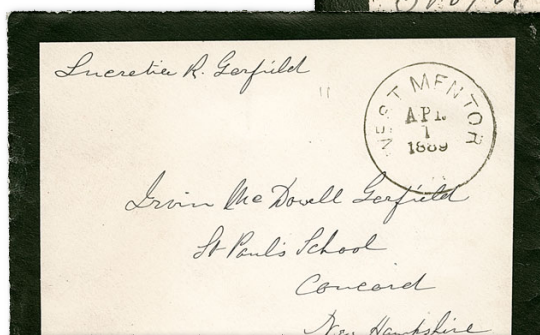 Lucretia R. Garfield
WEST MENTOR
APR.
1
1889
Irvin McDowell Garfield
St Paul's School
Concord
New Hampshire